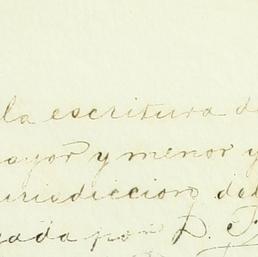 la escritura d
ayor y menor y
urisdiccion del
ada por D. F